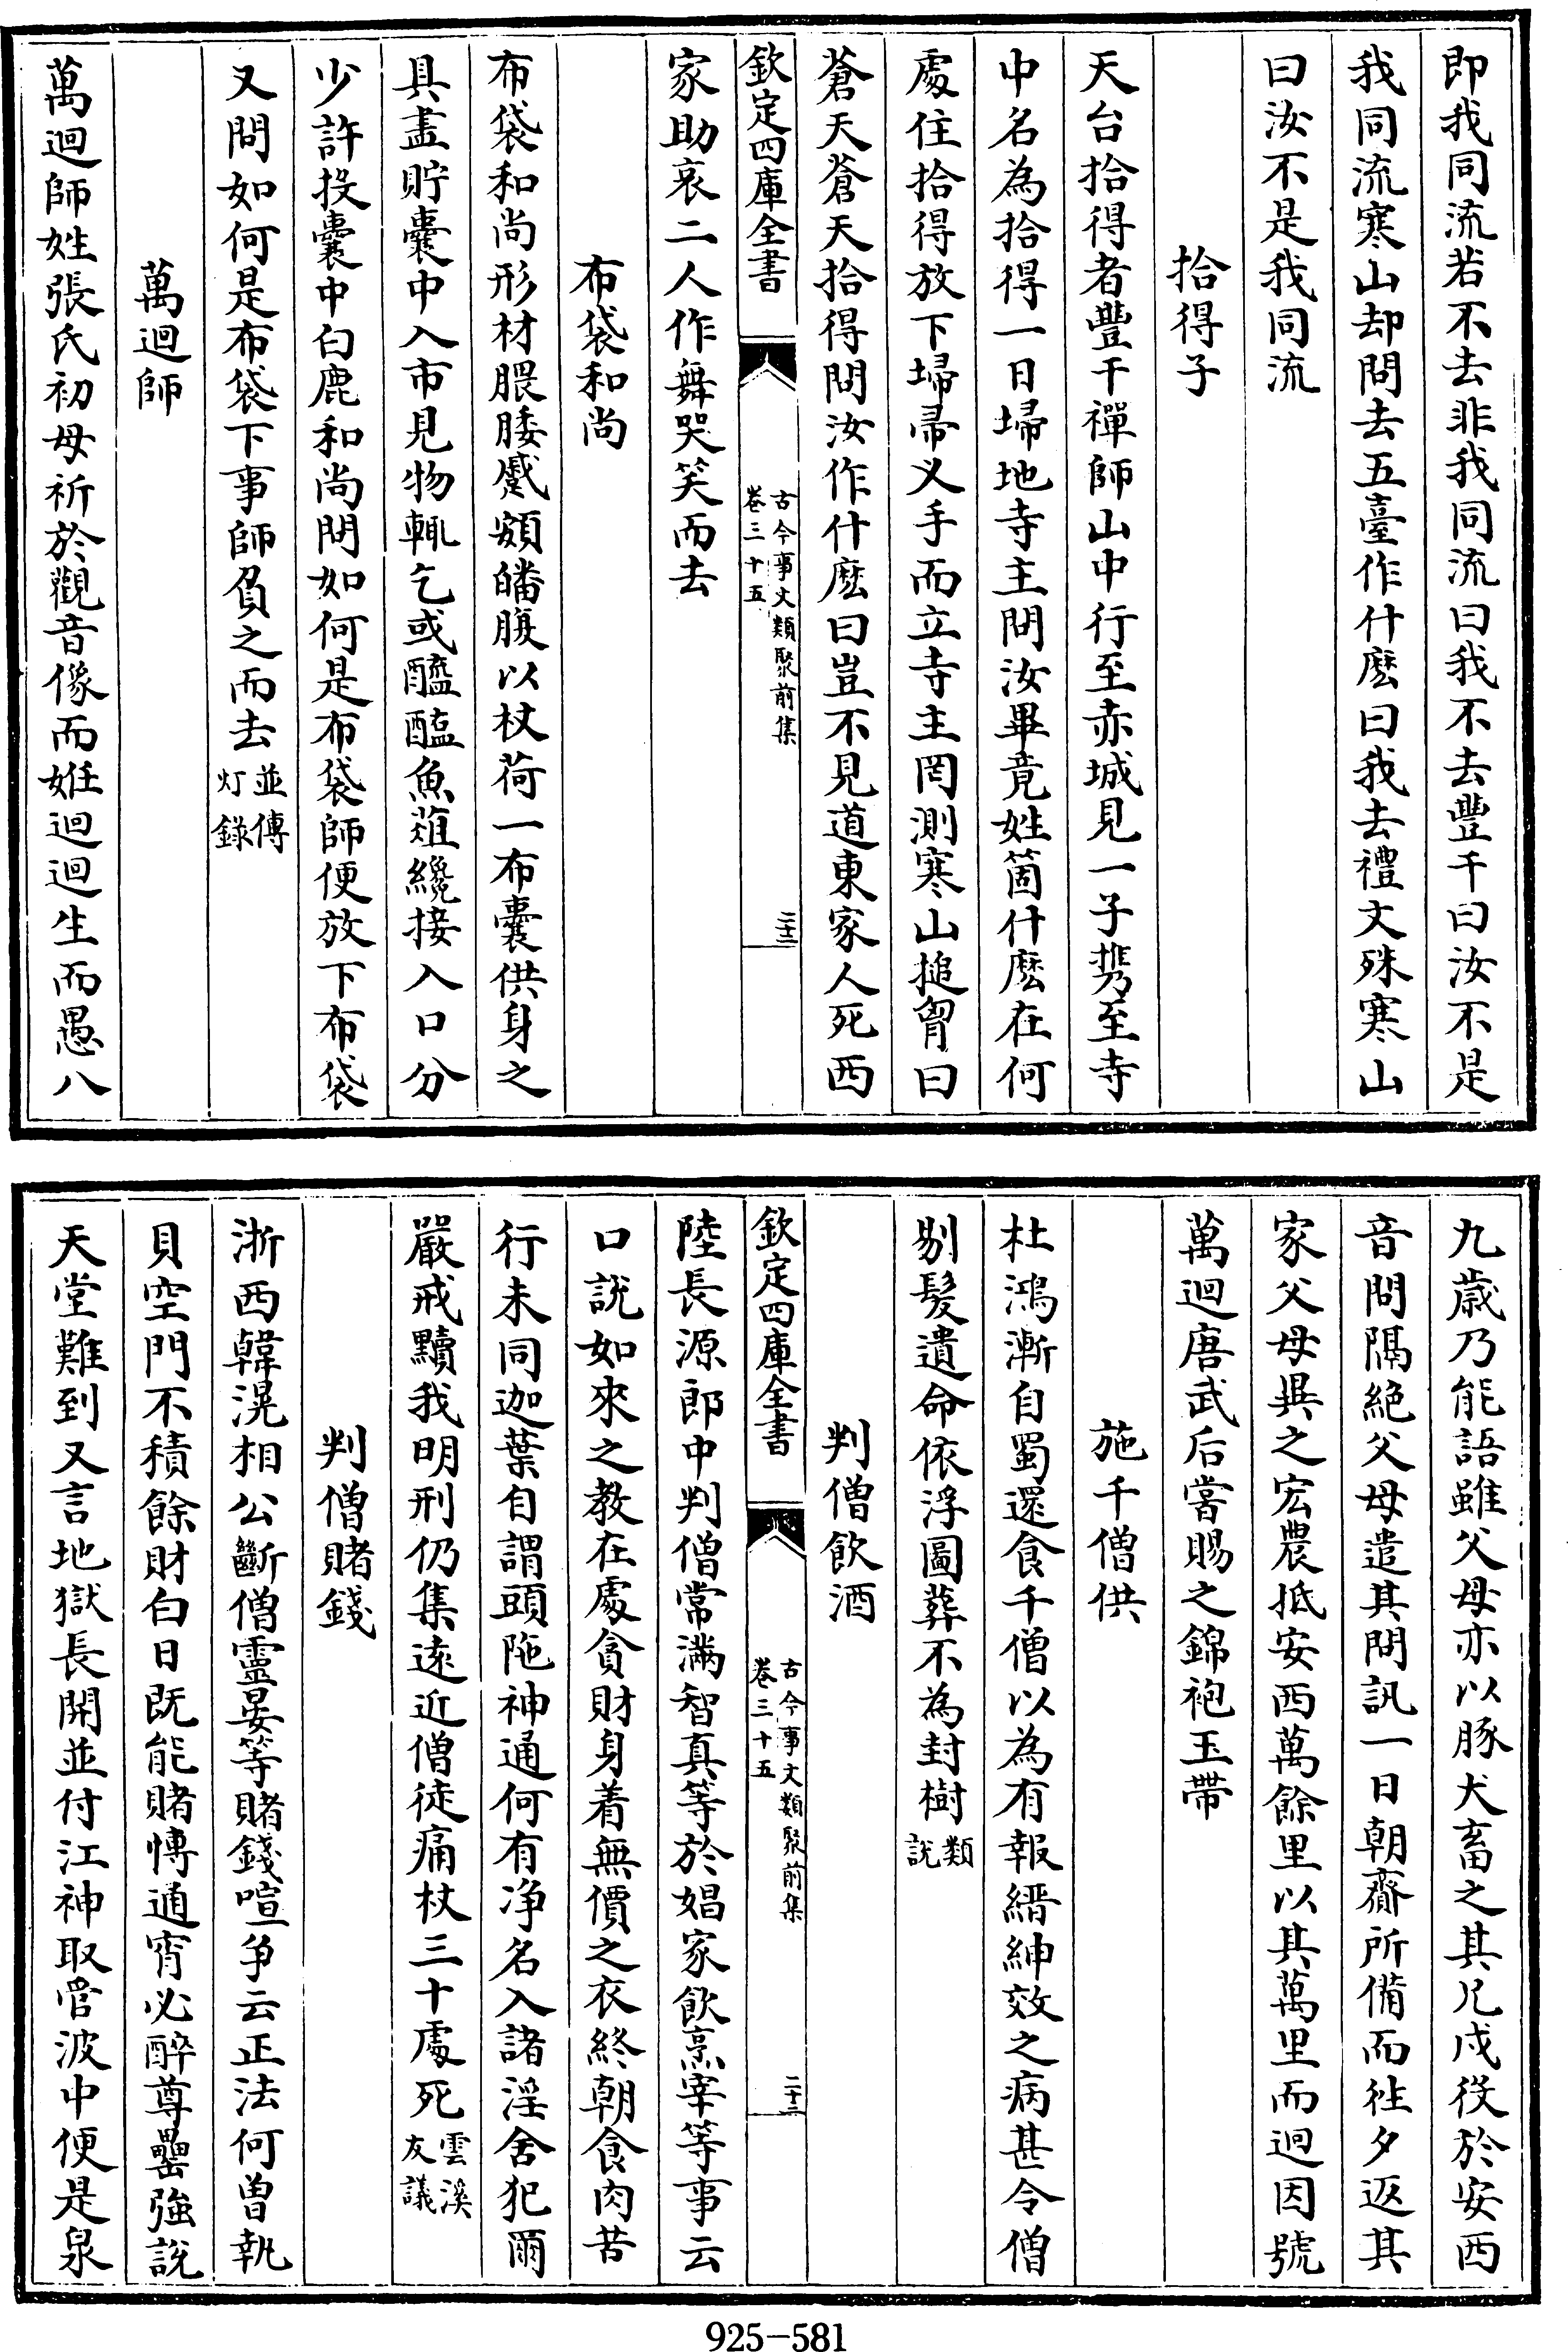 即我同流若不去非我同流曰我不去豐干曰汝不是
我同流寒山却問去五臺作什麽曰我去禮文殊寒山
曰汝不是我同流
拾得子
天台拾得者豐干禪師山中行至赤城見一子携至寺
中名為拾得一日埽地寺主問汝畢竟姓箇什麽在何
處住拾得放下埽帚义手而立寺主罔測寒山搥胷曰
蒼天蒼天拾得問汝作什麽曰豈不見道東家人死西
欽定四庫全書
古今事文類聚前集
卷三十五
二十二
家助哀二人作舞哭笑而去
布袋和尚
布袋和尚形材腲脮蹙頞皤腹以杖荷一布囊供身之
具盡貯囊中入市見物輒乞或醯醢魚葅纔接入口分
少許投囊中白鹿和尚問如何是布袋師便放下布袋
又問如何是布袋下事師負之而去並傳灯錄
萬迴師
萬迴師姓張氏初母祈於觀音像而姙迴迴生而愚八
九歲乃能語雖父母亦以豚犬畜之其兄戍役於安西
音問隔絶父母遣其問訊一日朝齎所備而徃夕返其
家父母異之宏農抵安西萬餘里以其萬里而迴因號
萬迴唐武后嘗賜之錦袍玉帶
施千僧供
杜鴻漸自蜀還食千僧以為有報縉紳效之病甚令僧
剔髮遺命依浮圖葬不為封樹類説
判僧飲酒
欽定四庫全書
古今事文類聚前集
卷三十五
二十二
陸長源郎中判僧常滿智真等於娼家飲烹宰等事云
口説如來之教在處貪財身着無價之衣終朝食肉苦
行未同迦葉自謂頭陁神通何有净名入諸淫舍犯爾
嚴戒黷我明刑仍集遠近僧徒痛杖三十處死雲溪友議
判僧賭錢
浙西韓滉相公斷僧靈晏等賭錢喧爭云正法何曾執
貝空門不積餘財白日既能賭慱通宵必醉尊罍強説
天堂難到又言地獄長開並付江神取管波中便是泉
925-581